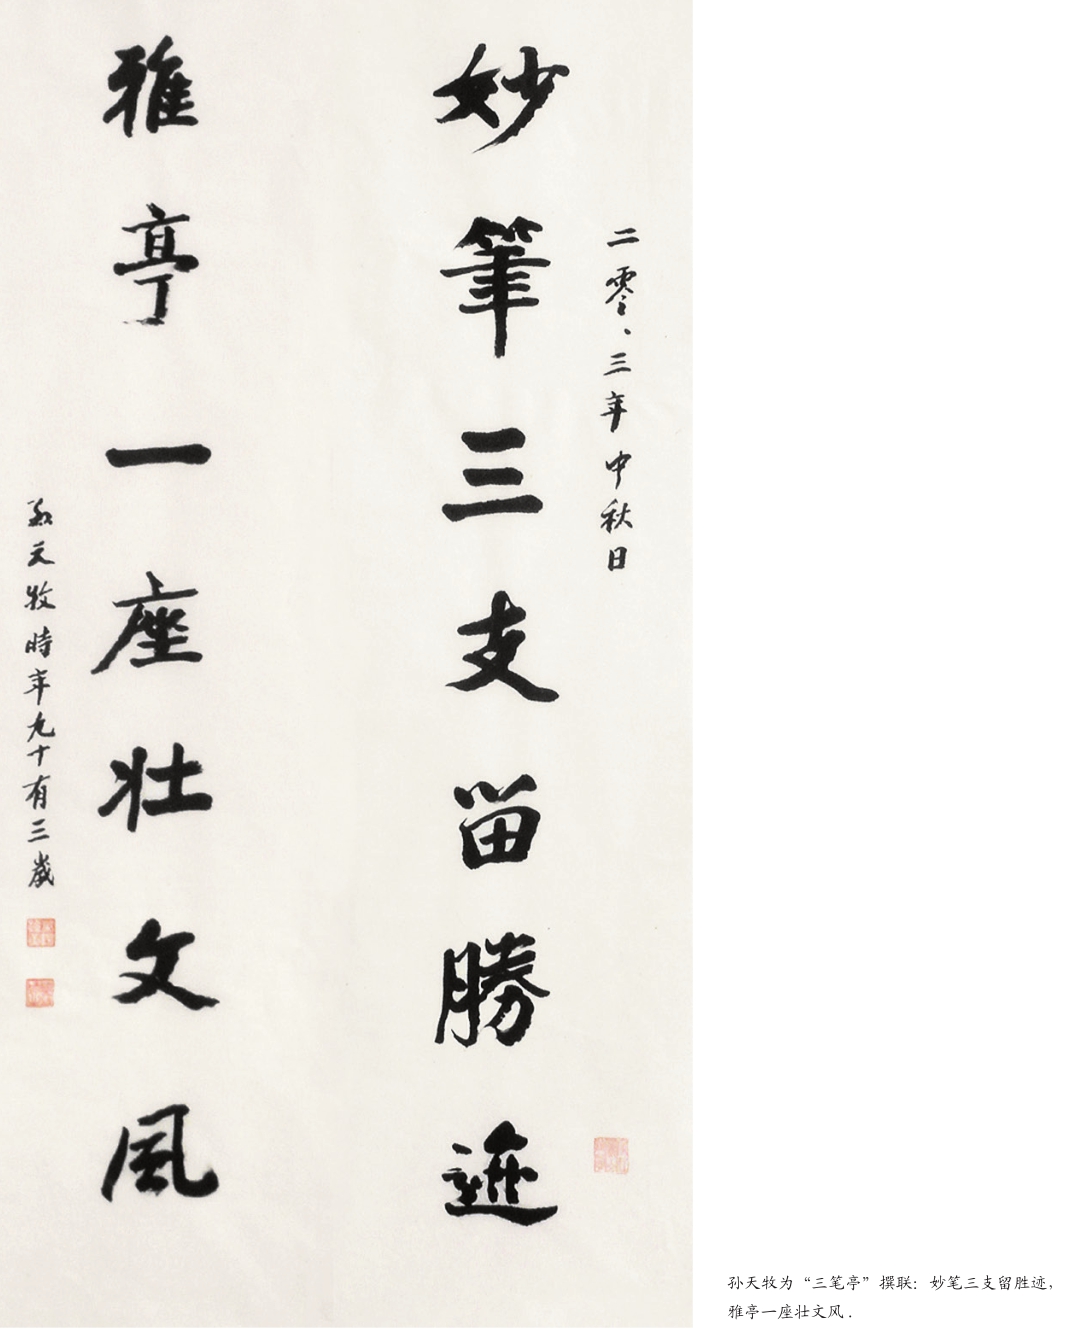 二零、三年中秋日
妙筆三支留勝迹
雅亭一座壮文風
孙天牧時年九十有三歲
孙天牧为“三笔亭”撰联：妙笔三支留胜迹，
雅亭一座壮文风 .